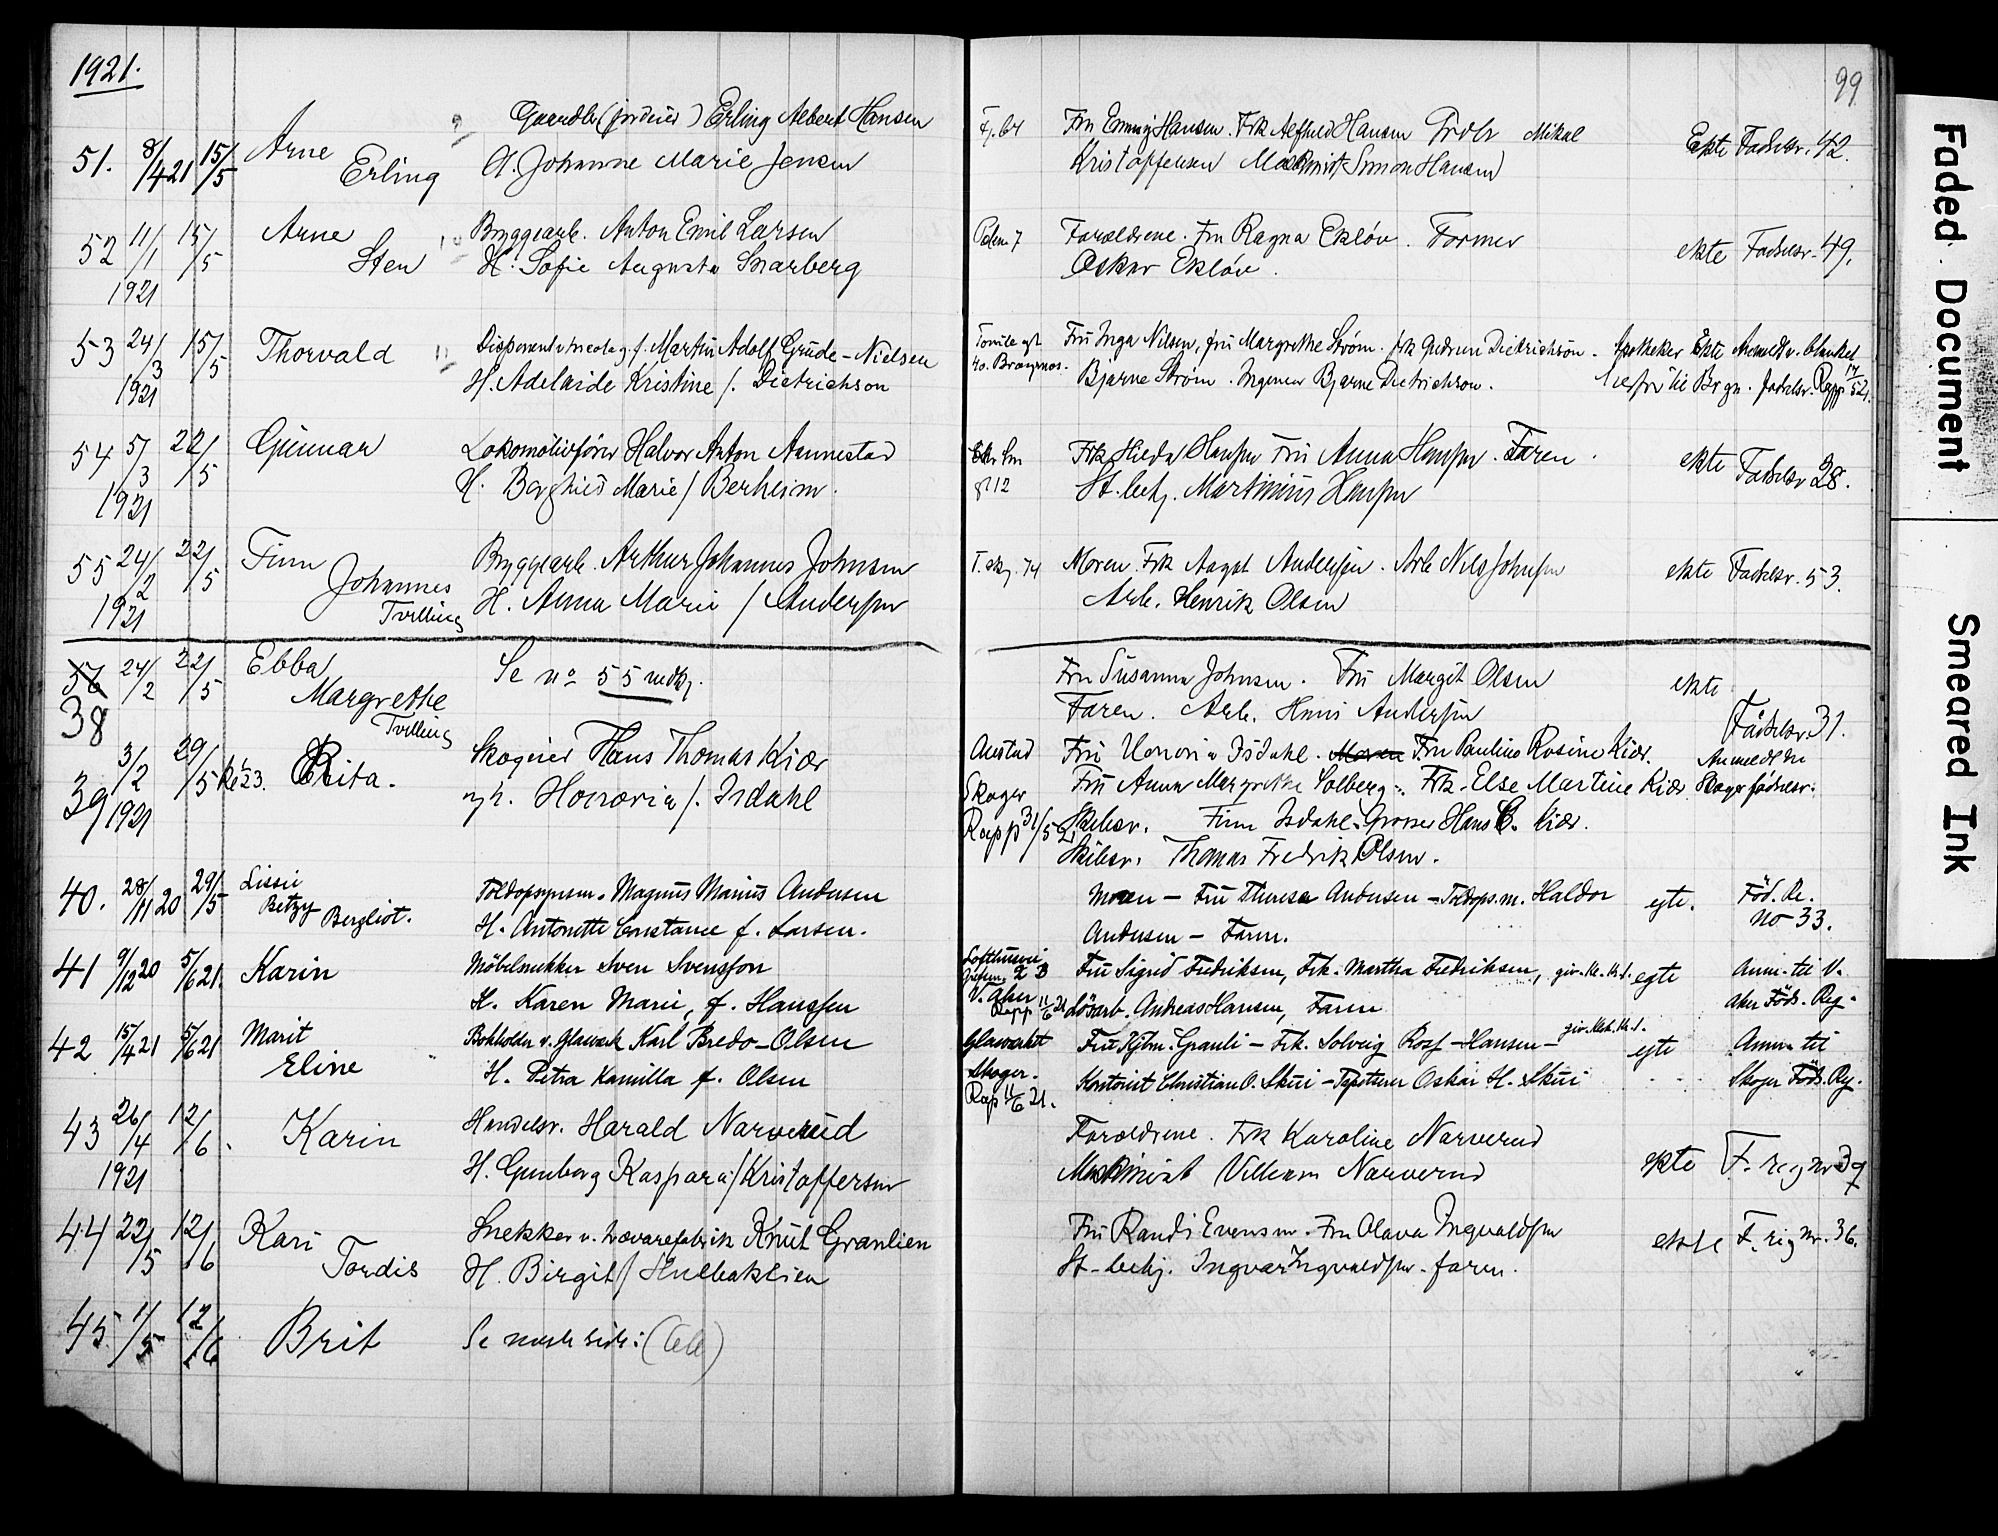 1921.
99
51. 8/4 21 15/5 Arne Erling
Gaardbr (jordeier) Erling Albert Hansen
H. Johanne Marie Jensen
Fru Emmy Hansen. Frk Alfhild Hansen Mikal
Kristoffersen Maskinist Simon Hansen
Ekte Fødselsr. 42.
52 11/1 1921 15/5 Arne Sten
Bryggearb. Anton Emil Larsen
H. Sofie Augusta Snarberg
7
Forældrene. Fru Ragna Ekløv. Former
Oskar Ekløv.
ekte Fødselsr. 49.
53 24/3 1921 15/5 Thorvald
Disponent Martin Adolf Grude-Nielsen
H. Adelaide Kristine f. Dietrichson
Tomtegt
40. Bragernes.
Fru Inga Nilsen, fru Margrethe Strøm. frk Gudrun Dietrichson. Apotheker
Bjarne Strøm. Ingeniør Bjarne Dietrichson.
Ekte Anmeldt v. blanket
til Brgn. fødselsr. Rapp 17/5 21.
54 5/3 1921 22/5 Gunnar
Lokomotivfører Halvor Anton Aannestad
H. Borghild Marie f. Berheim.
gt 12
Frk Hilda Hansen Fru Anna Hansen. Faren.
St. betj. Martinius Hansen
ekte Fødselsr 28.
55 24/2 1921 22/5 Finn Johannes
Tvilling
Bryggearb. Arthur Johannes Johnsen
H. Anna Marie f. Andersen
T. skg. 74
Moren. Frk Aagot Andersen. Arb Nils Johnsen
Arb. Henrik Olsen
ekte Fødselsr. 53.
56 38 24/2 22/5 Ebba Margrethe
Tvilling
Se no 55 mdkj.
Fru Susanna Johnsen. Fru Margit Olsen
Faren. Arb. Hans Andersen
ekte
Fødselsr. 31.
39 3/2 1921 29/5 Rita.
Skogeier Hans Thomas Kiær
og h. Honoria f. Isdahl
Austad
Skoger
Rapp 31/5 21.
Fru Honoria Isdahl. Moren Fru Pauline Rosine Kiær.
Fru Anna Margrethe Solberg. Frk. Else Martine Kiær
Skibsr. Finn Isdahl. Grosser Hans C. Kiær.
Skibsr. Thomas Fredrik Olsen.
Anmeldt til
Skoger fødselsr.
40. 28/11 20 29/5 Lissie
Betzy Bergliot.
Toldopsynsm. Magnus Marius Andersen
H. Antonette Constance f. Larsen.
Moren - Fru Therese Andersen - Toldops.m. Haldor
Andersen - Faren.
egte.
Föd. Re.
no 33.
41 9/12 20 5/6 21. Karin
Möbelsnekker Sven Svensson
H. Karen Marie, f. Hanssen
V. Aker
Rapp 11/6 21
Fru Sigrid Fredriksen, Frk. Martha Fredriksen,
Lösarb. Andreas Hansen, Faren
egte
Anm. til V.
Aker Föds. Reg.
42 15/4 21 5/6 21 Marit
Eline
Bokholder v. Glasverk Karl Bredo-Olsen
H. Petra Kamilla f. Olsen
Glasverket
Skoger.
Rap 11/6 21.
Fru Hjm. Granli - Frk. Solveig Rosf-Hansen -
Kontorist Christian O. Skui - Typetserer Oskar H. Skui
egte
Anm. til
Skoger Föds. Reg.
43 26/4 1921 12/6. Karin
Handelsr. Harald Narverud
H. Gunborg Kaspara f. Kristoffersen
Forældrene. Frk Karoline Narverud
Maskinist Villiam Narverud
ekte F. reg nr 39
44 22/5 12/6 Kari
Tordis
Snekker v. trævarefabrik Knut Granlien
H. Birgit f. Hulbaklien
Fru Randi Evensen. Fru Olava Ingvaldsen
St-betj. Ingvar Ingvaldsen. faren.
ekte F. reg nr. 36.
45 1/5 12/6 Brit
Se neste side:
Faded Document
Smeared Ink